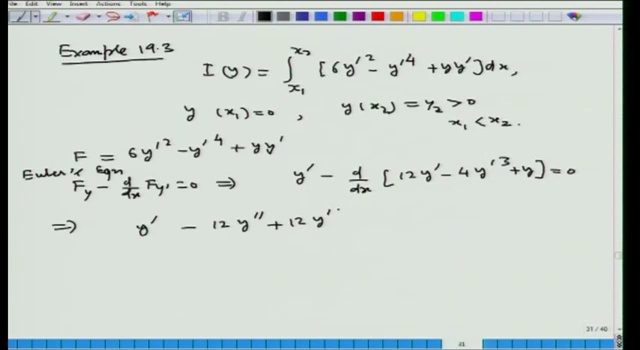 Edit View Insert Actions Tools Help
Example 19.3
I(y) = ∫_{x₁}^{x₂} [6y'² - y'⁴ + yy']dx,
y(x₁)=0, y(x₂) = y₂ > 0
x₁ < x₂.
F = 6y'² - y'⁴ + yy'
Euler's Eqn
F_y - d/dx F_y' = 0 ⇒ y' - d/dx [12y' - 4y'³ + y] = 0
⇒ y' - 12y'' + 12y'
31 / 40
31